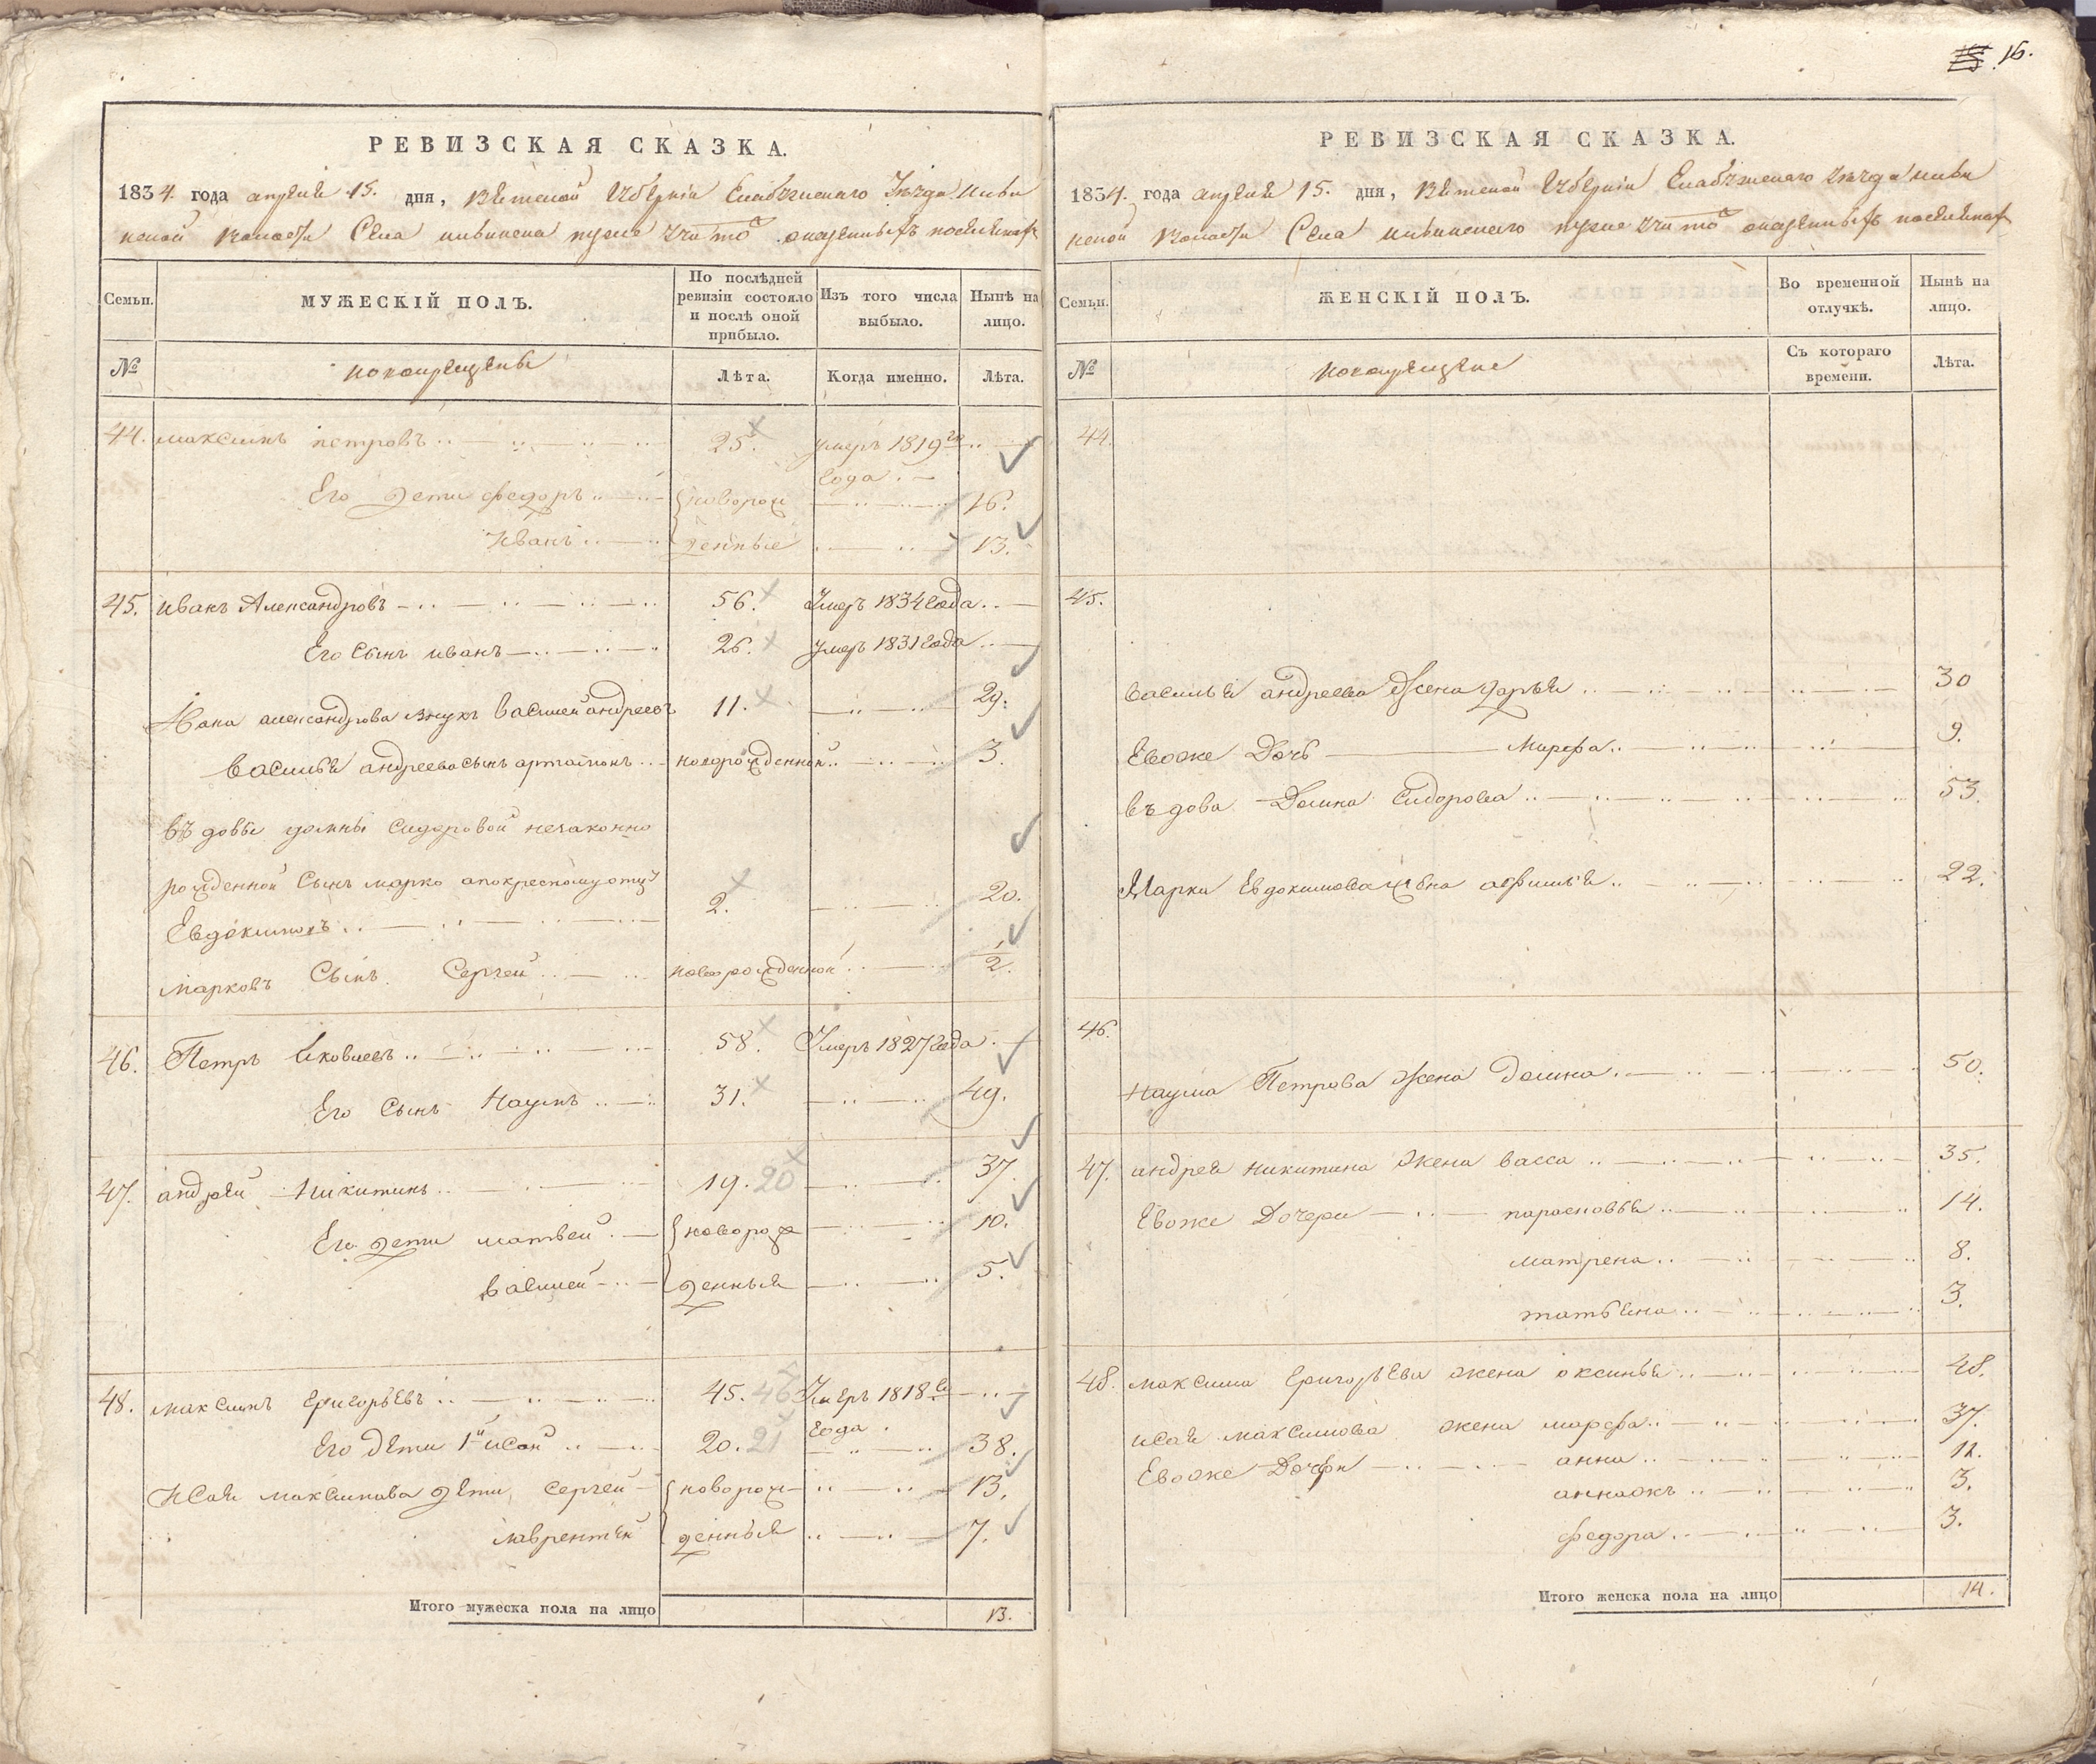 16.
РЕВИЗСКАЯ СКАЗКА.
1834. года апреля 15. дня, Вятской Губерніи Елабужскаго Уезда
Волости Села
Семьи.
МУЖЕСКІЙ ПОЛЪ.
По послѣдней ревизіи состояло и послѣ оной прибыло.
Изъ того числа выбыло.
Нынѣ на лицо.
№
новокрещены
Лѣта.
Когда именно.
Лѣта.
44. максимъ петровъ 25. умеръ 1819го года
Его дети федоръ новорож 16.
Иванъ денные 13.
45. иванъ Александровъ 56. Умеръ 1834 года
Его Сынъ иванъ 26. умеръ 1831 года
Ивана александрова внукъ василей андреевъ 11. 29.
василья андреева сынъ артамонъ новорожденной 3.
въдовы домны сидоровой незаконно
рожденной Сынъ марко апокресному отцу
Евдокимовъ 2. 20.
марковъ Сынъ Сергей новорожденной 1/2.
46. Петръ яковлевъ 58. Умеръ 1827 года
Его Сынъ Наумъ 31. 49.
47. андрей Никитинъ 19. 20 37.
Его дети матвей новорож 10.
василей денныя 5.
48. максимъ григорьевъ 45. 46 Умеръ 1818го года
Его дети 1й исай 20. 21 38.
Исая максимова дети Сергей новорож 13.
лаврентей денныя 7.
Итого мужеска пола на лицо 13.
РЕВИЗСКАЯ СКАЗКА.
1834. года апреля 15. дня, Вятской Губерніи Елабужскаго уезда
Волости Села
Семьи.
ЖЕНСКІЙ ПОЛЪ.
Во временной отлучкѣ.
Нынѣ на лицо.
№
новокрещены
Съ котораго времени.
Лѣта.
44.
45.
василья андреева Жена дарья 30
Евоже Дочь Марфа 9.
въдова Домна Сидорова 53.
Марка Евдокимова жена афимья 22.
46.
Наума Петрова жена Домна 50.
47. андрея никитина жена васса 35.
Евоже Дочери парасковья 14.
матрена 8.
татьяна 3.
48. максима григорьева жена оксинья 48.
исая максимова жена марфа 37.
Евоже Дочери анна 12.
3.
федора 3.
Итого женска пола на лицо 14.